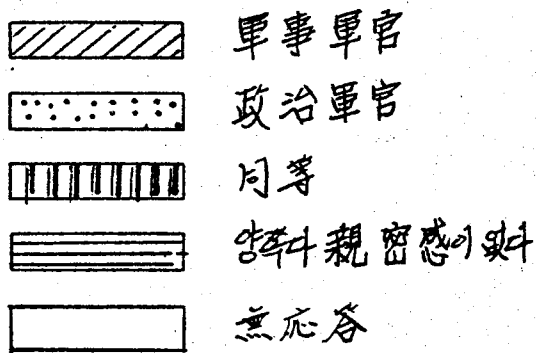 軍事軍官
政治軍官
同等
양쪽다 親密感이 없다
無応答